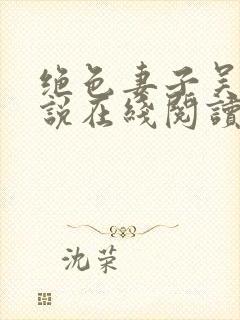 绝色妻子吴
说在綫閱讀
沈荣